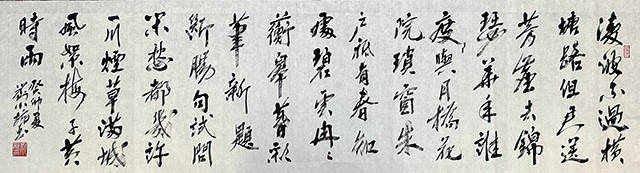 凌波不過橫
塘路但目送
芳塵去錦
瑟華年誰
度與月橋花
院瑣窗朱
戶祗有春知
處碧雲冉〻
蘅皋暮彩
筆新題
斷腸句試問
閑愁都幾許
一川煙草滿城
風絮梅子黃
時雨
癸卯夏
書